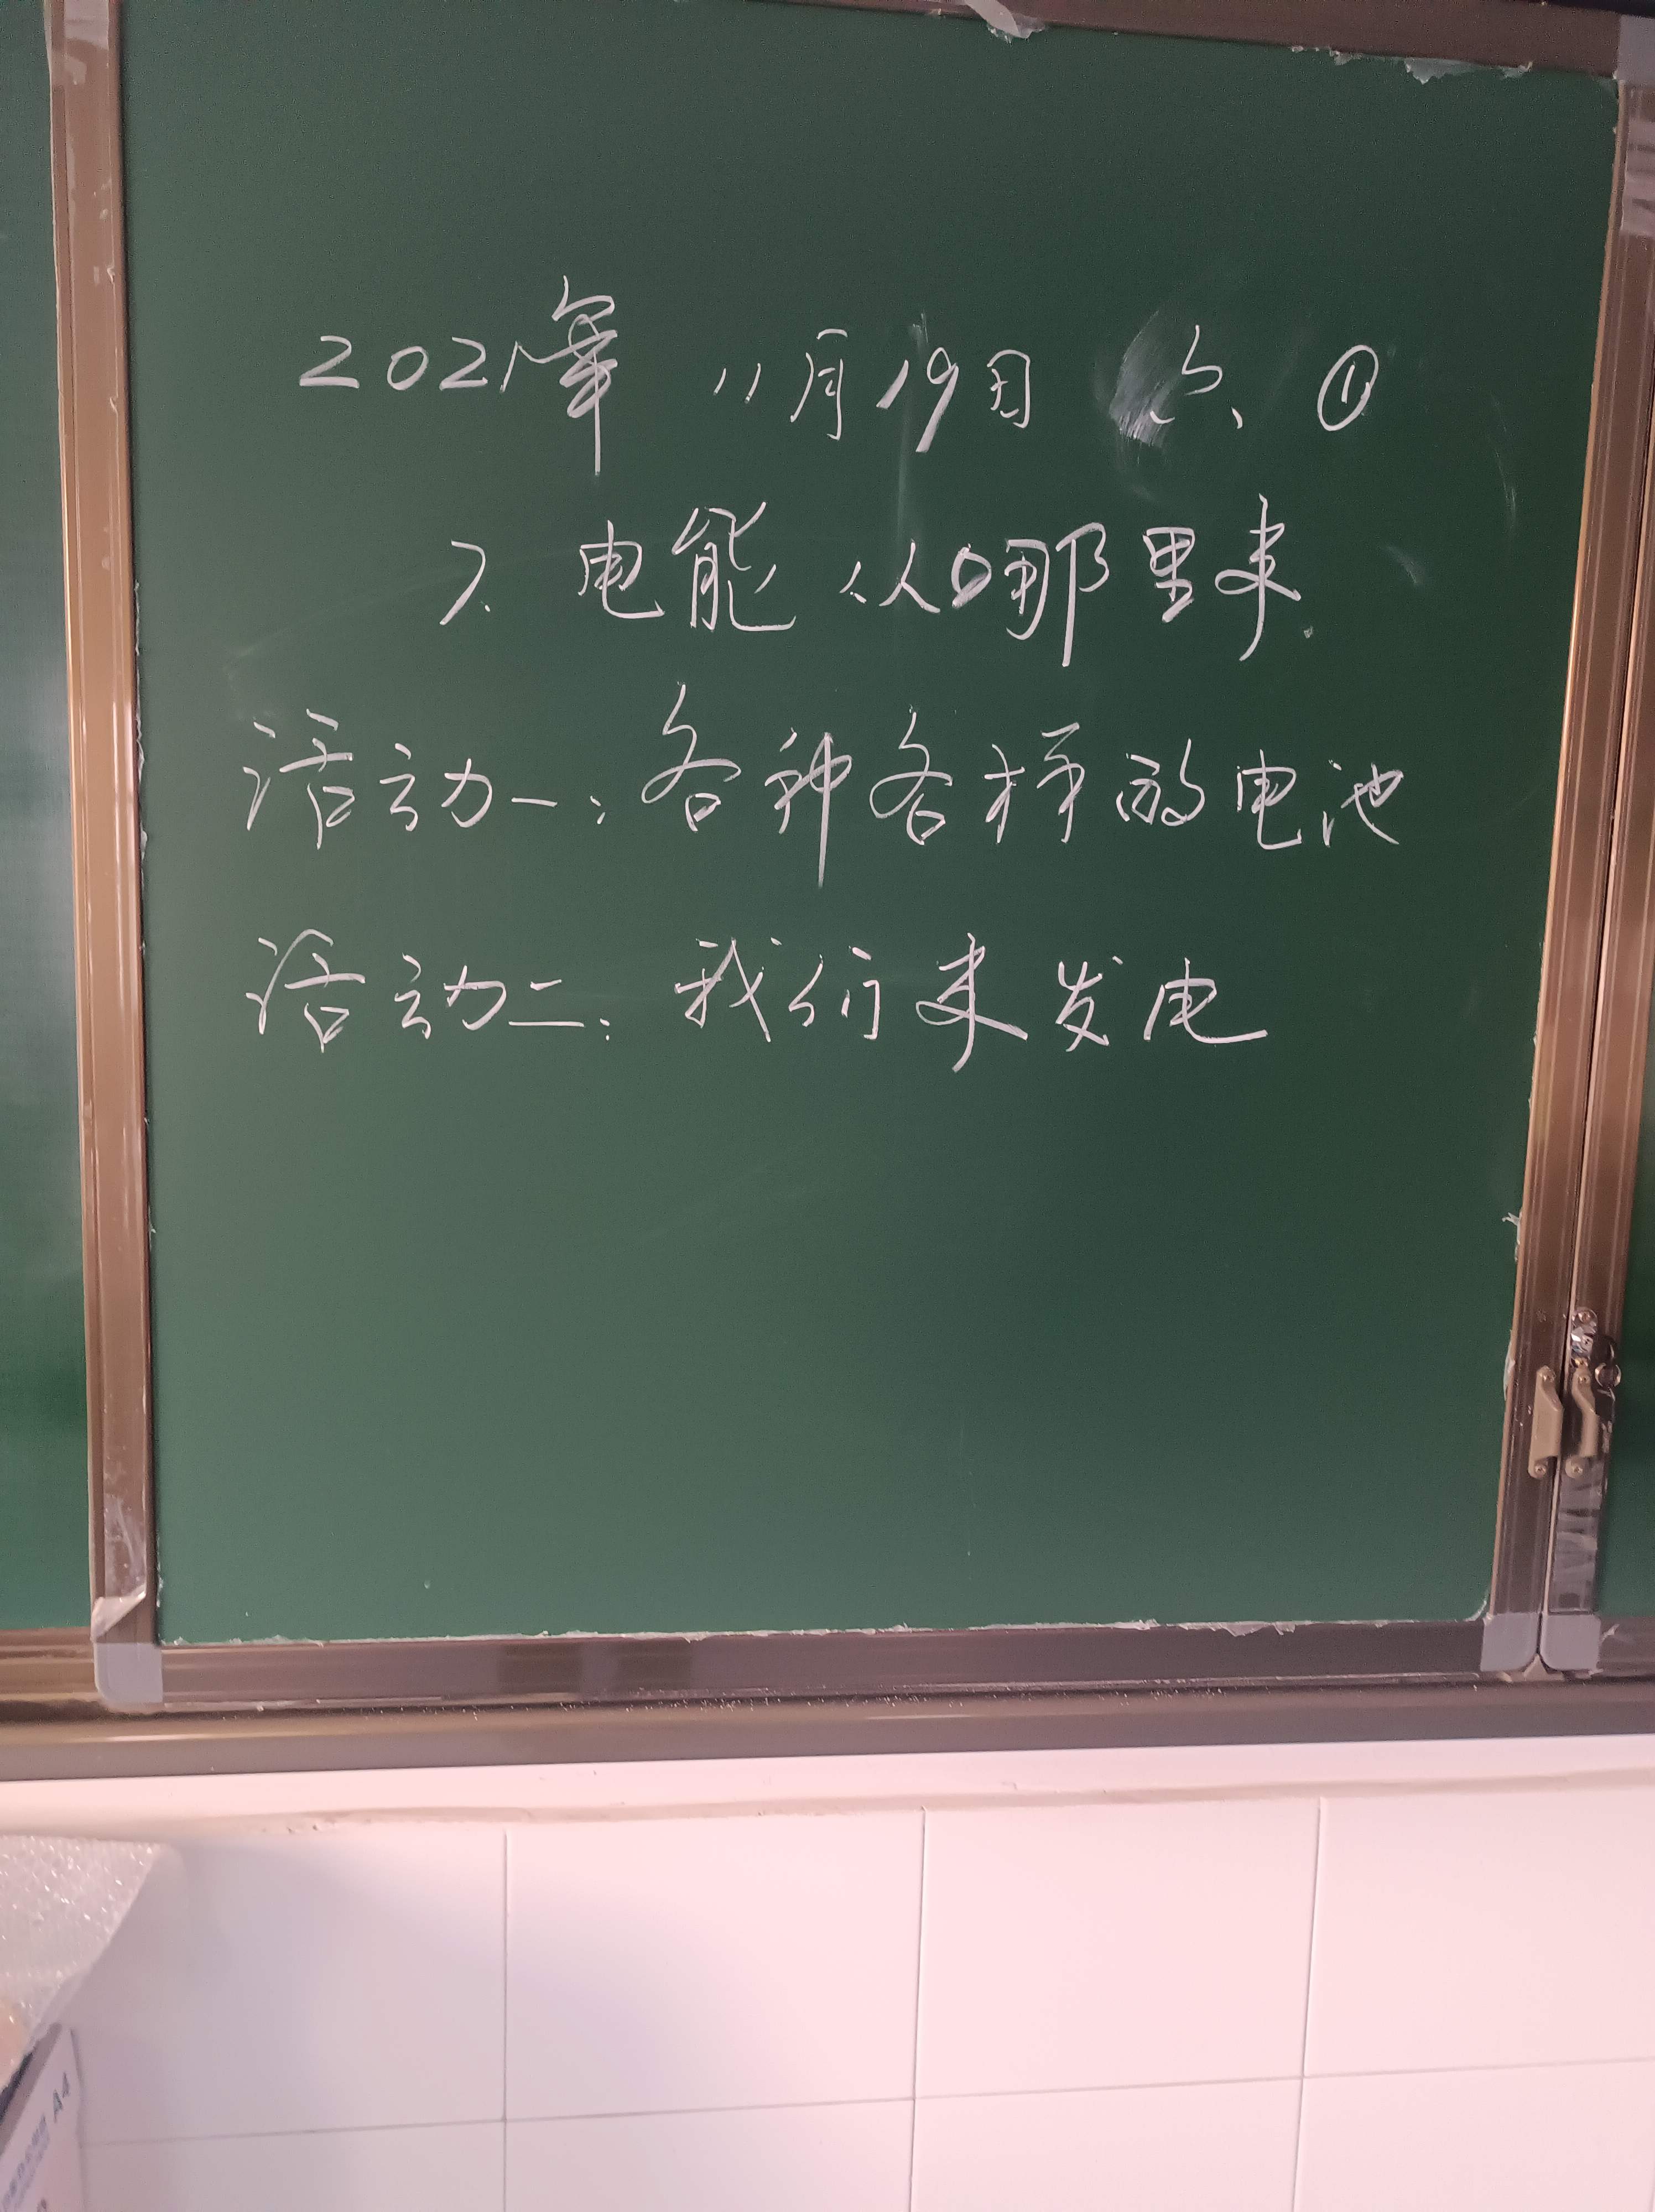 2021年 11月19日 六、①
7. 电能从哪里来.
活动一：各种各样的电池
活动二：我们来发电
A4